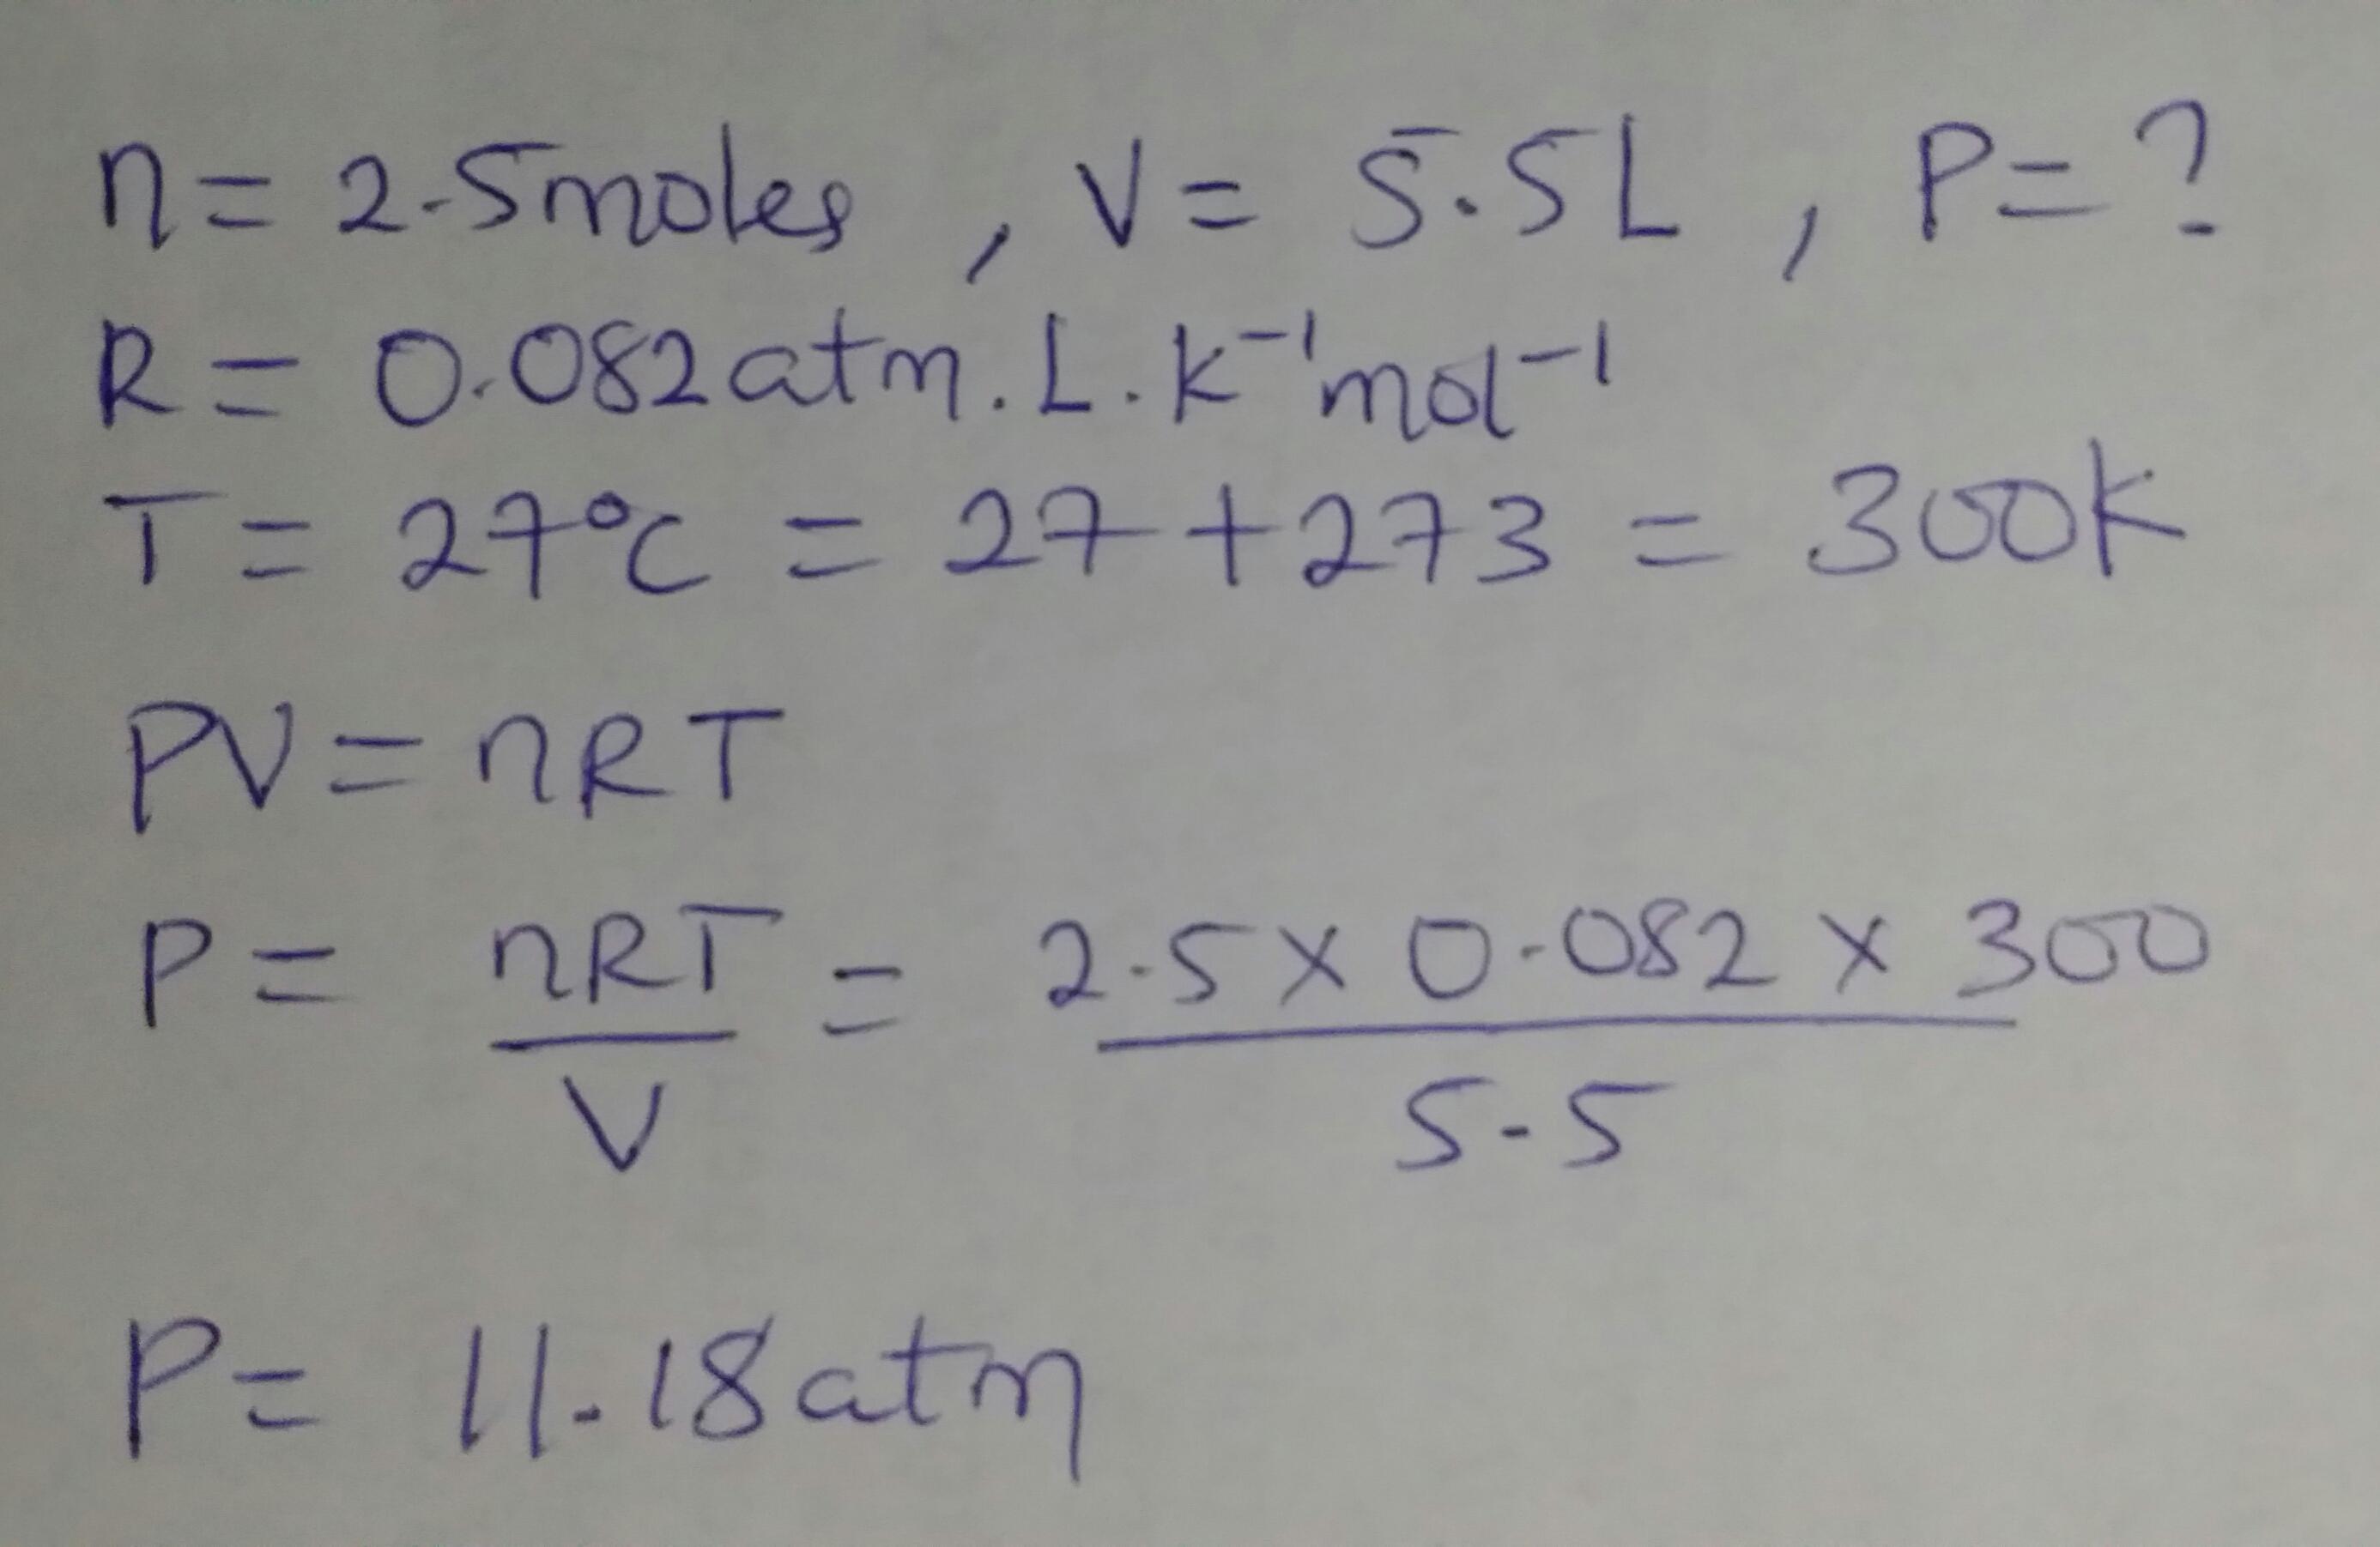 n = 2.5moles , V = 5.5L , P = ?
R = 0.082atm.L.K⁻¹mol⁻¹
T = 27°C = 27 + 273 = 300K
PV = nRT
P = nRT = 2.5 x 0.082 x 300
V 5.5
P = 11.18atm